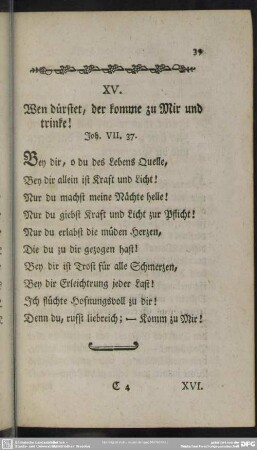 39
XV.
Wen dürstet, der komme zu Mir und
trinke!
Joh. VII. 37.
Bey dir, o du des Lebens Quelle,
Bey dir allein ist Kraft und Licht!
Nur du machst meine Nächte helle!
Nur du giebst Kraft und Licht zur Pflicht!
Nur du erlabst die müden Herzen,
Die du zu dir gezogen hast!
Bey dir ist Trost für alle Schmerzen,
Bey dir Erleichtrung jeder Last!
Ich flüchte Hofnungsvoll zu dir!
Denn du, rufst liebreich; — Komm zu Mir!
C 4 XVI.